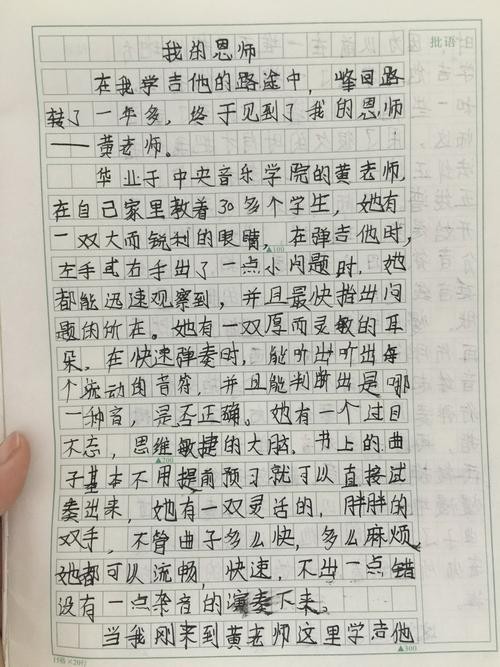 批语
我的恩师
在我学吉他的路途中，峰回路
转了一年多，终于见到了我的恩师
——黄老师。
毕业于中央音乐学院的黄老师，
在自己家里教着30多个学生，她有
一双大而锐利的眼睛，在弹吉他时，
▲100
左手或右手出了一点小问题时，她
都能迅速观察到，并且最快指出问
题的所在。她有一双厚而灵敏的耳
朵，在快速弹奏时，能听出听出每
个流动的音符，并且能判断出是哪
一种音，是否正确。她有一个过目
不忘，思维敏捷的大脑。书上的曲
▲200
子基本不用提前预习就可以直接试
奏出来，她有一双灵活的，胖胖的
双手，不管曲子多么快，多么麻烦，
她都可以流畅，快速，不出一点错
没有一点杂音的演奏下来。
当我刚来到黄老师这里学吉他
15格×20行
▲300